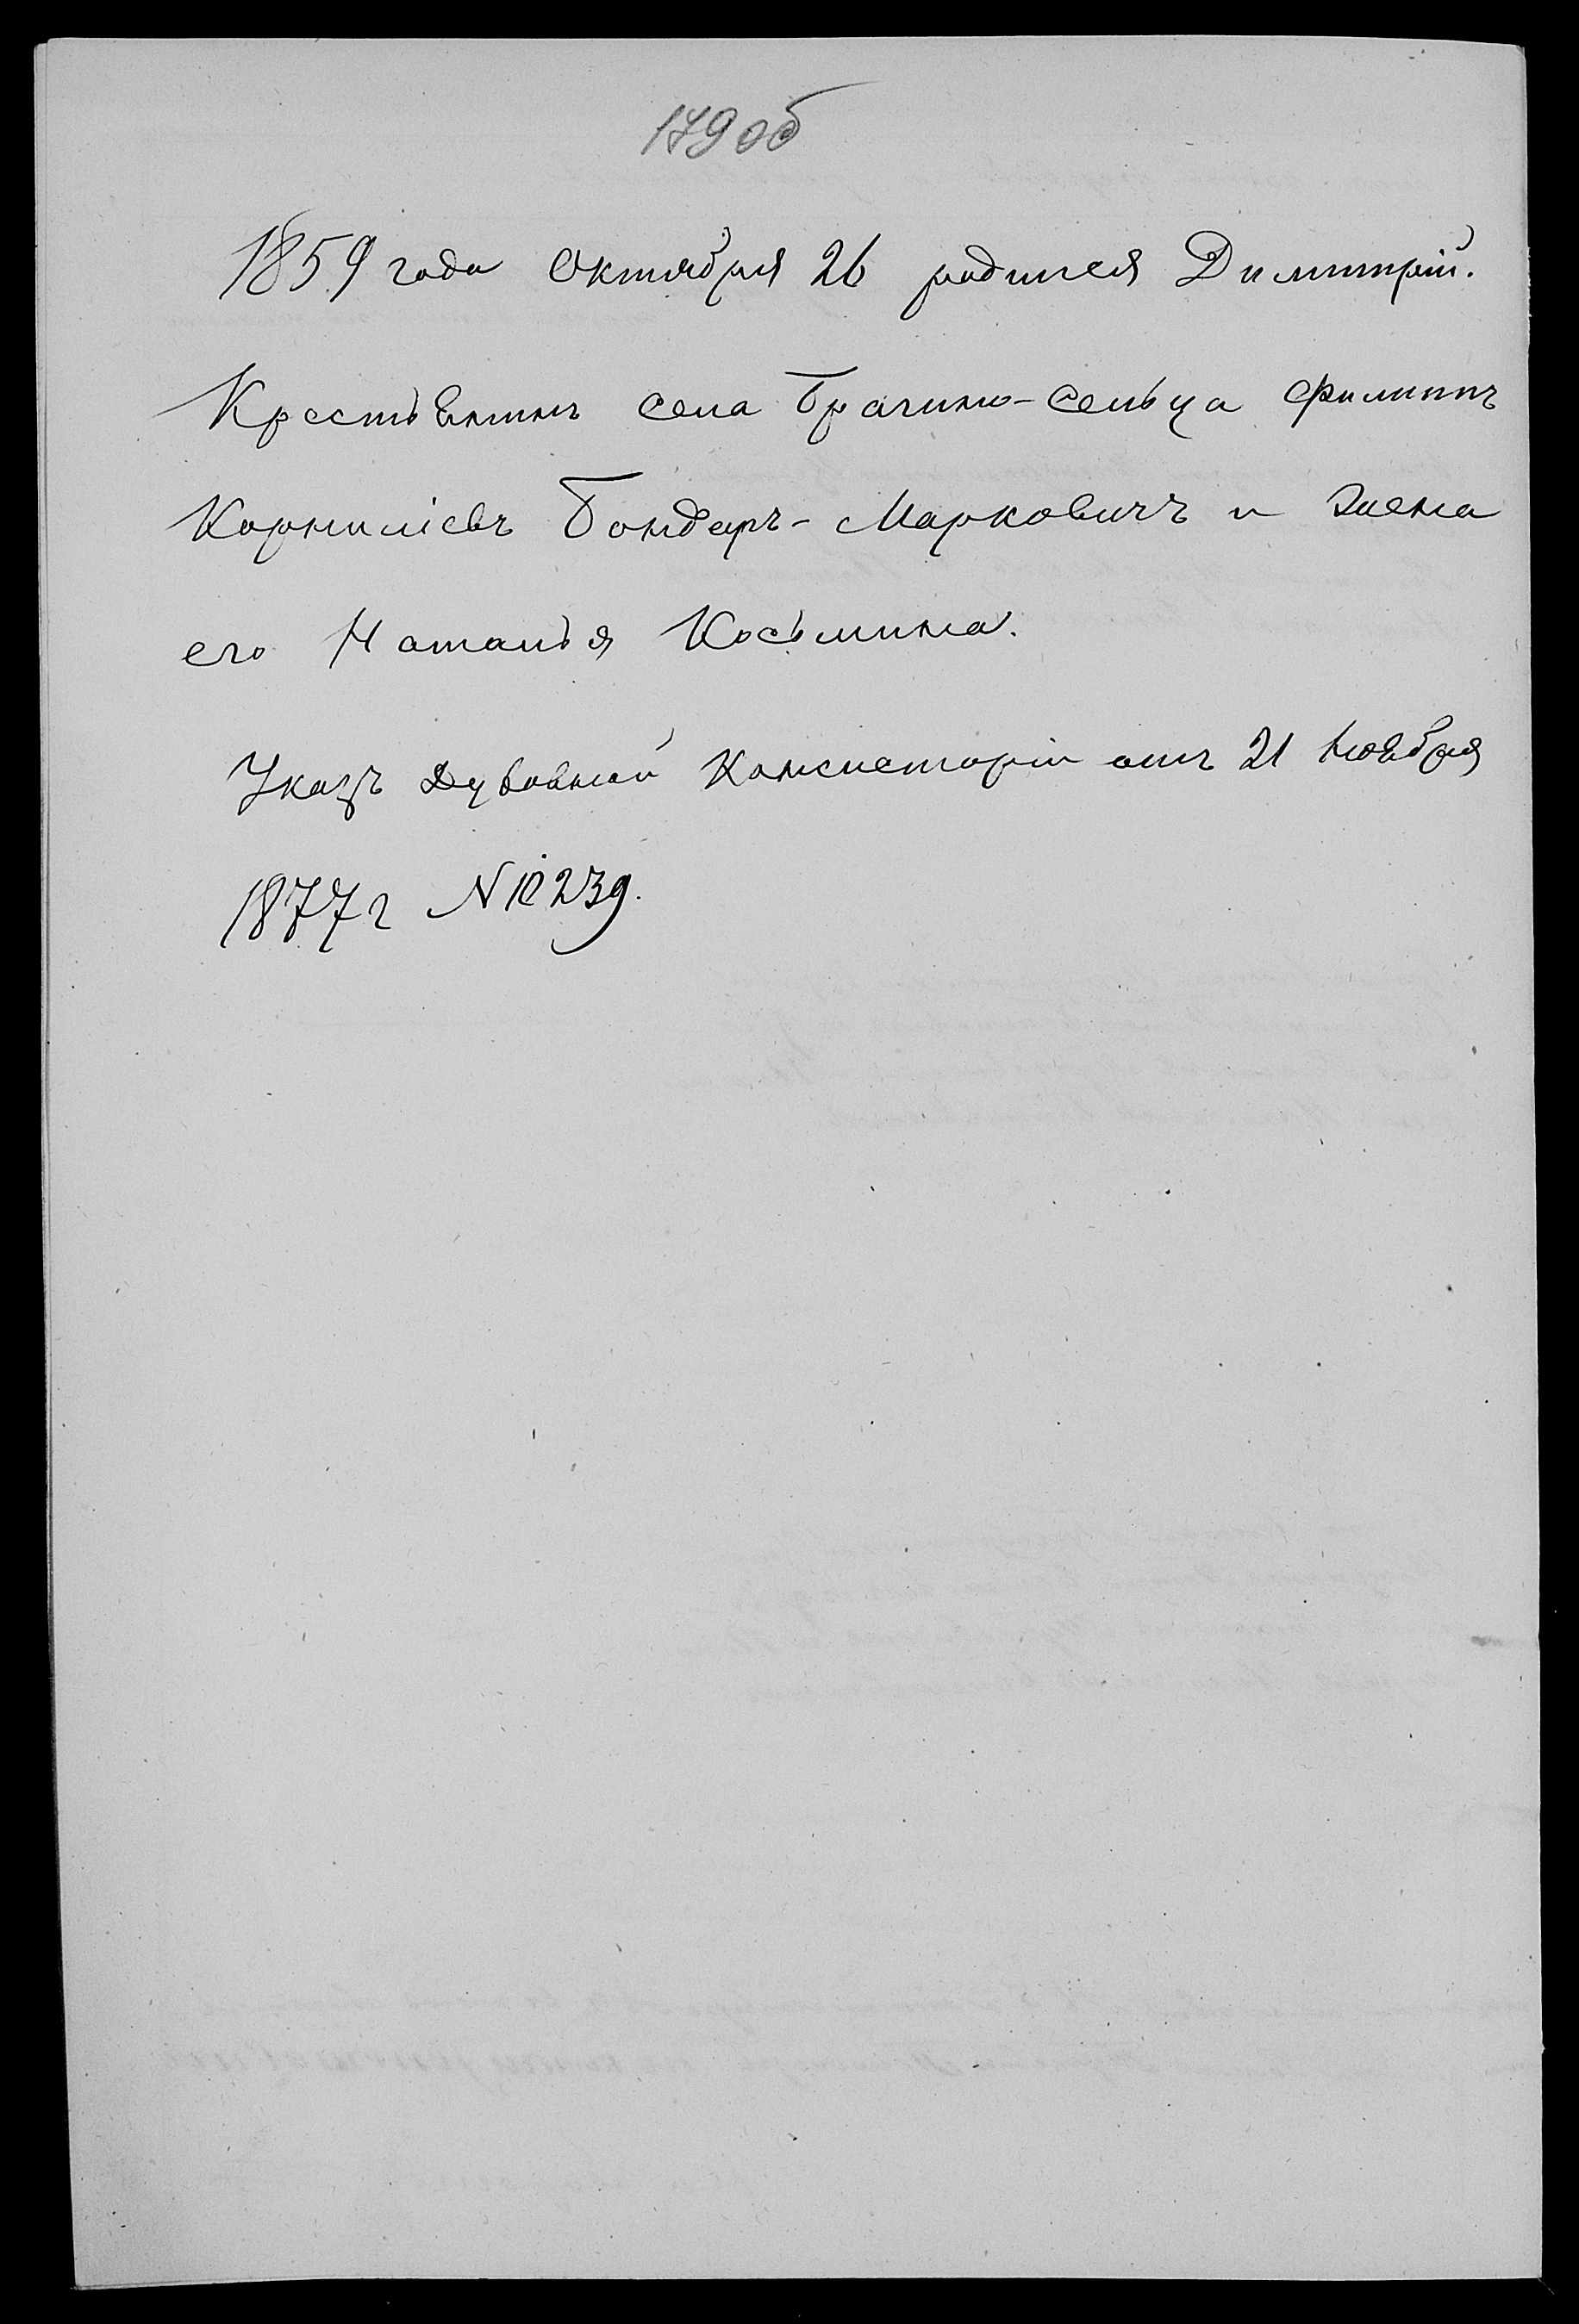 179 об
1859 года Октября 26 родился Димитрій.
Крестьянинъ села Брагино-Сельца Филиппъ
Корниліевъ Бондарь-Марковичъ и жена
его Наталья Косьмина.
Указъ Духовной Консисторіи отъ 21 Ноября
1877 г N 10239.